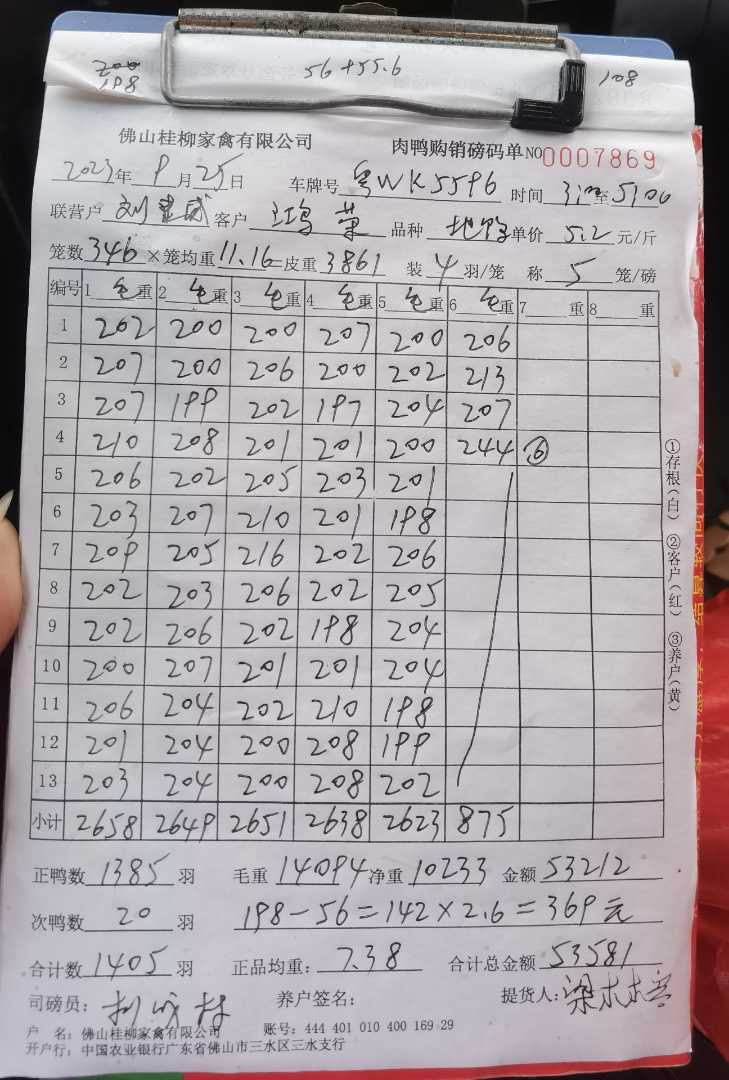 200
198
56+55.6
108
佛山桂柳家禽有限公司 肉鸭购销磅码单NO0007869
2023年 9月25日 车牌号 粤WK5596 时间 至5:00
联营户 刘 客户 鸿 荣 品种 单价 5.2 元/斤
笼数346×笼均重11.16=皮重3861 装4羽/笼 称5笼/磅
编号 1 毛重 2 毛重 3 毛重 4 毛重 5 毛重 6 毛重 7 重 8 重
1 202 200 200 207 200 206
2 207 200 206 200 202 213
3 207 199 202 197 204 207
4 210 208 201 201 200 244 ⑥
5 206 202 205 203 201
6 203 207 210 201 198
7 209 205 216 202 206
8 202 203 206 202 205
9 202 206 202 198 204
10 200 207 201 201 204
11 206 204 202 210 198
12 201 204 200 208 199
13 203 204 200 208 202
小计 2658 2649 2651 2638 2623 875
正鸭数1385羽 毛重14094净重10233 金额53212
次鸭数20羽 198-56=142×2.6=369元
合计数1405羽 正品均重:7.38 合计总金额53581
司磅员: 养户签名: 提货人:梁木
户 名:佛山桂柳家禽有限公司 账号:444 401 010 400 169 29
开户行:中国农业银行广东省佛山市三水区三水支行
①存根(白) ②客户(红) ③养户(黄)